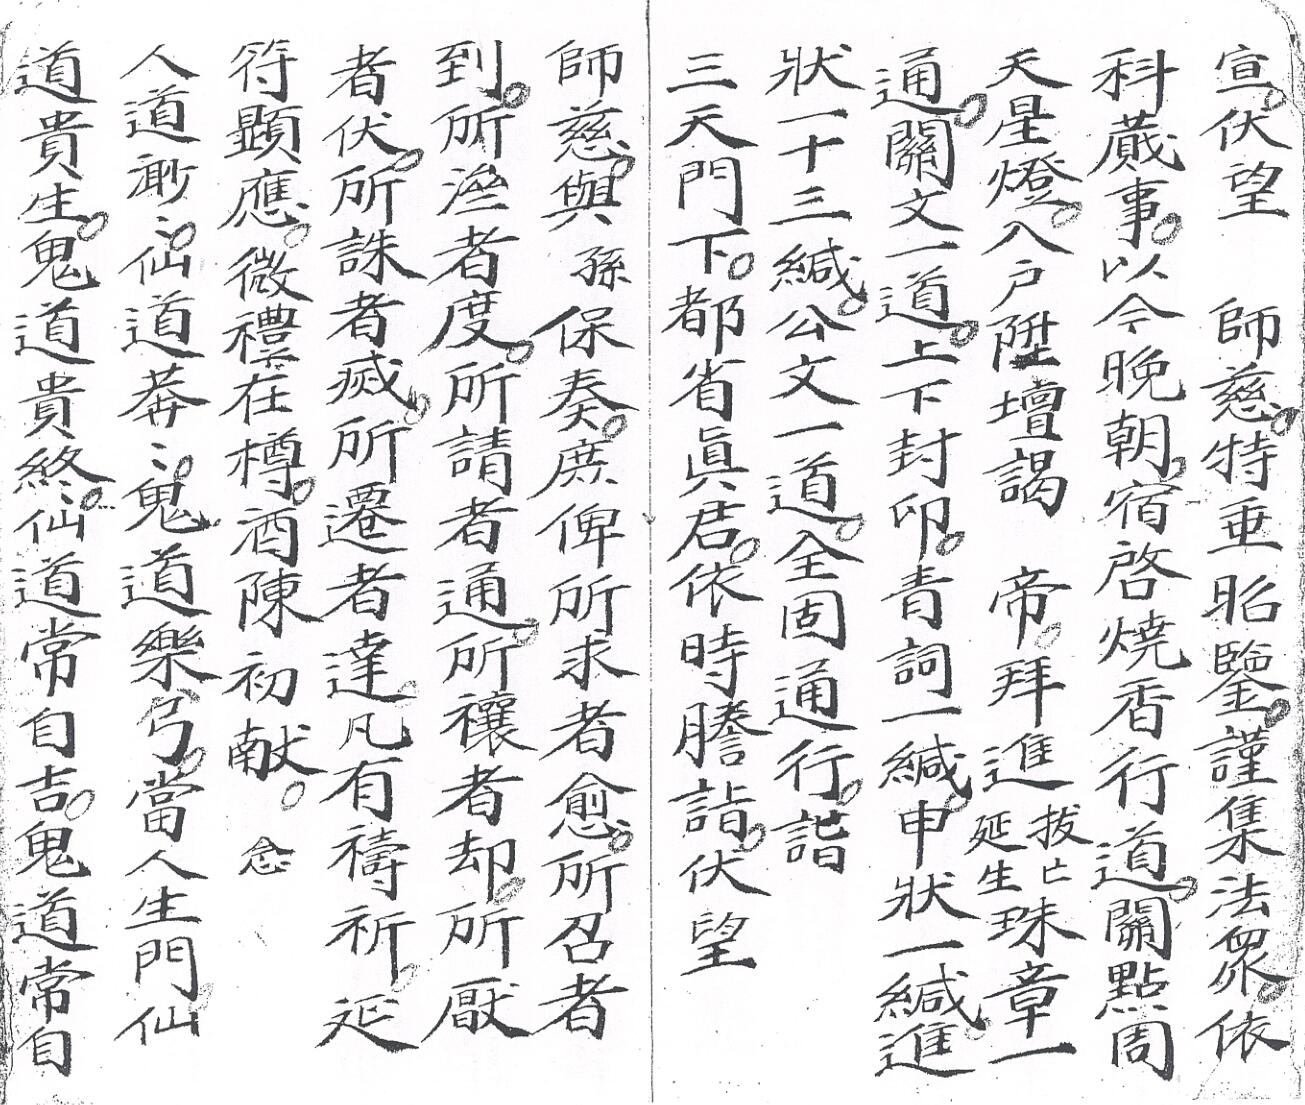 宣伏望　師慈特垂昭鑒謹集法眾依
科蕆事以今晚朝宿啓燒香行道關點周
天星燈入户陞壇謁　帝拜進拔亡延生珠章一
通關文一道上下封印青詞一緘申狀一緘進
狀一十三緘公文一道全固通行詣
三天門下都省眞君依時謄詣伏望
師慈與孫保奏庶俾所求者愈所召者
到所逆者度所請者通所禳者却所厭
者伏所誅者滅所遷者達凡有禱祈延
符顯應微禮在樽酒陳初献　念
人道渺〻仙道莽〻鬼道樂兮當人生門仙
道貴生鬼道貴終仙道常自吉鬼道常自